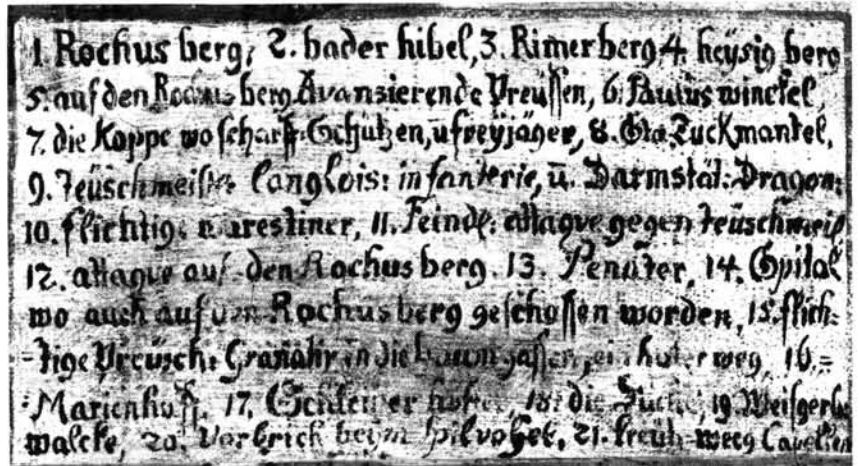 1. Rochus berg, 2. bader hibel, 3. Rimer berg 4. heysig berg
5. auf den Rochus berg Avanzierende Preussen, 6. Paulus winckel,
7. die Koppe wo scharff Schützen, u freyjäger, 8. Zuckmantel,
9. Teüschmeister Langlois: infanterie, ü. Darmstät: Dragon:
10. flichtige warestiner, 11. Feindl: attaque gegen teüschmeis
12. attaque auf den Rochus berg. 13. 14. Spital
wo auch auf den Rochus berg geschossen worden, 15. flich-
tige Preüsche Granatir in die 16.
Marienhoff, 17. 18. die 19. Weisgerb
walcke, 20. Vorbrick beym 21. Creütz weeg Capellen